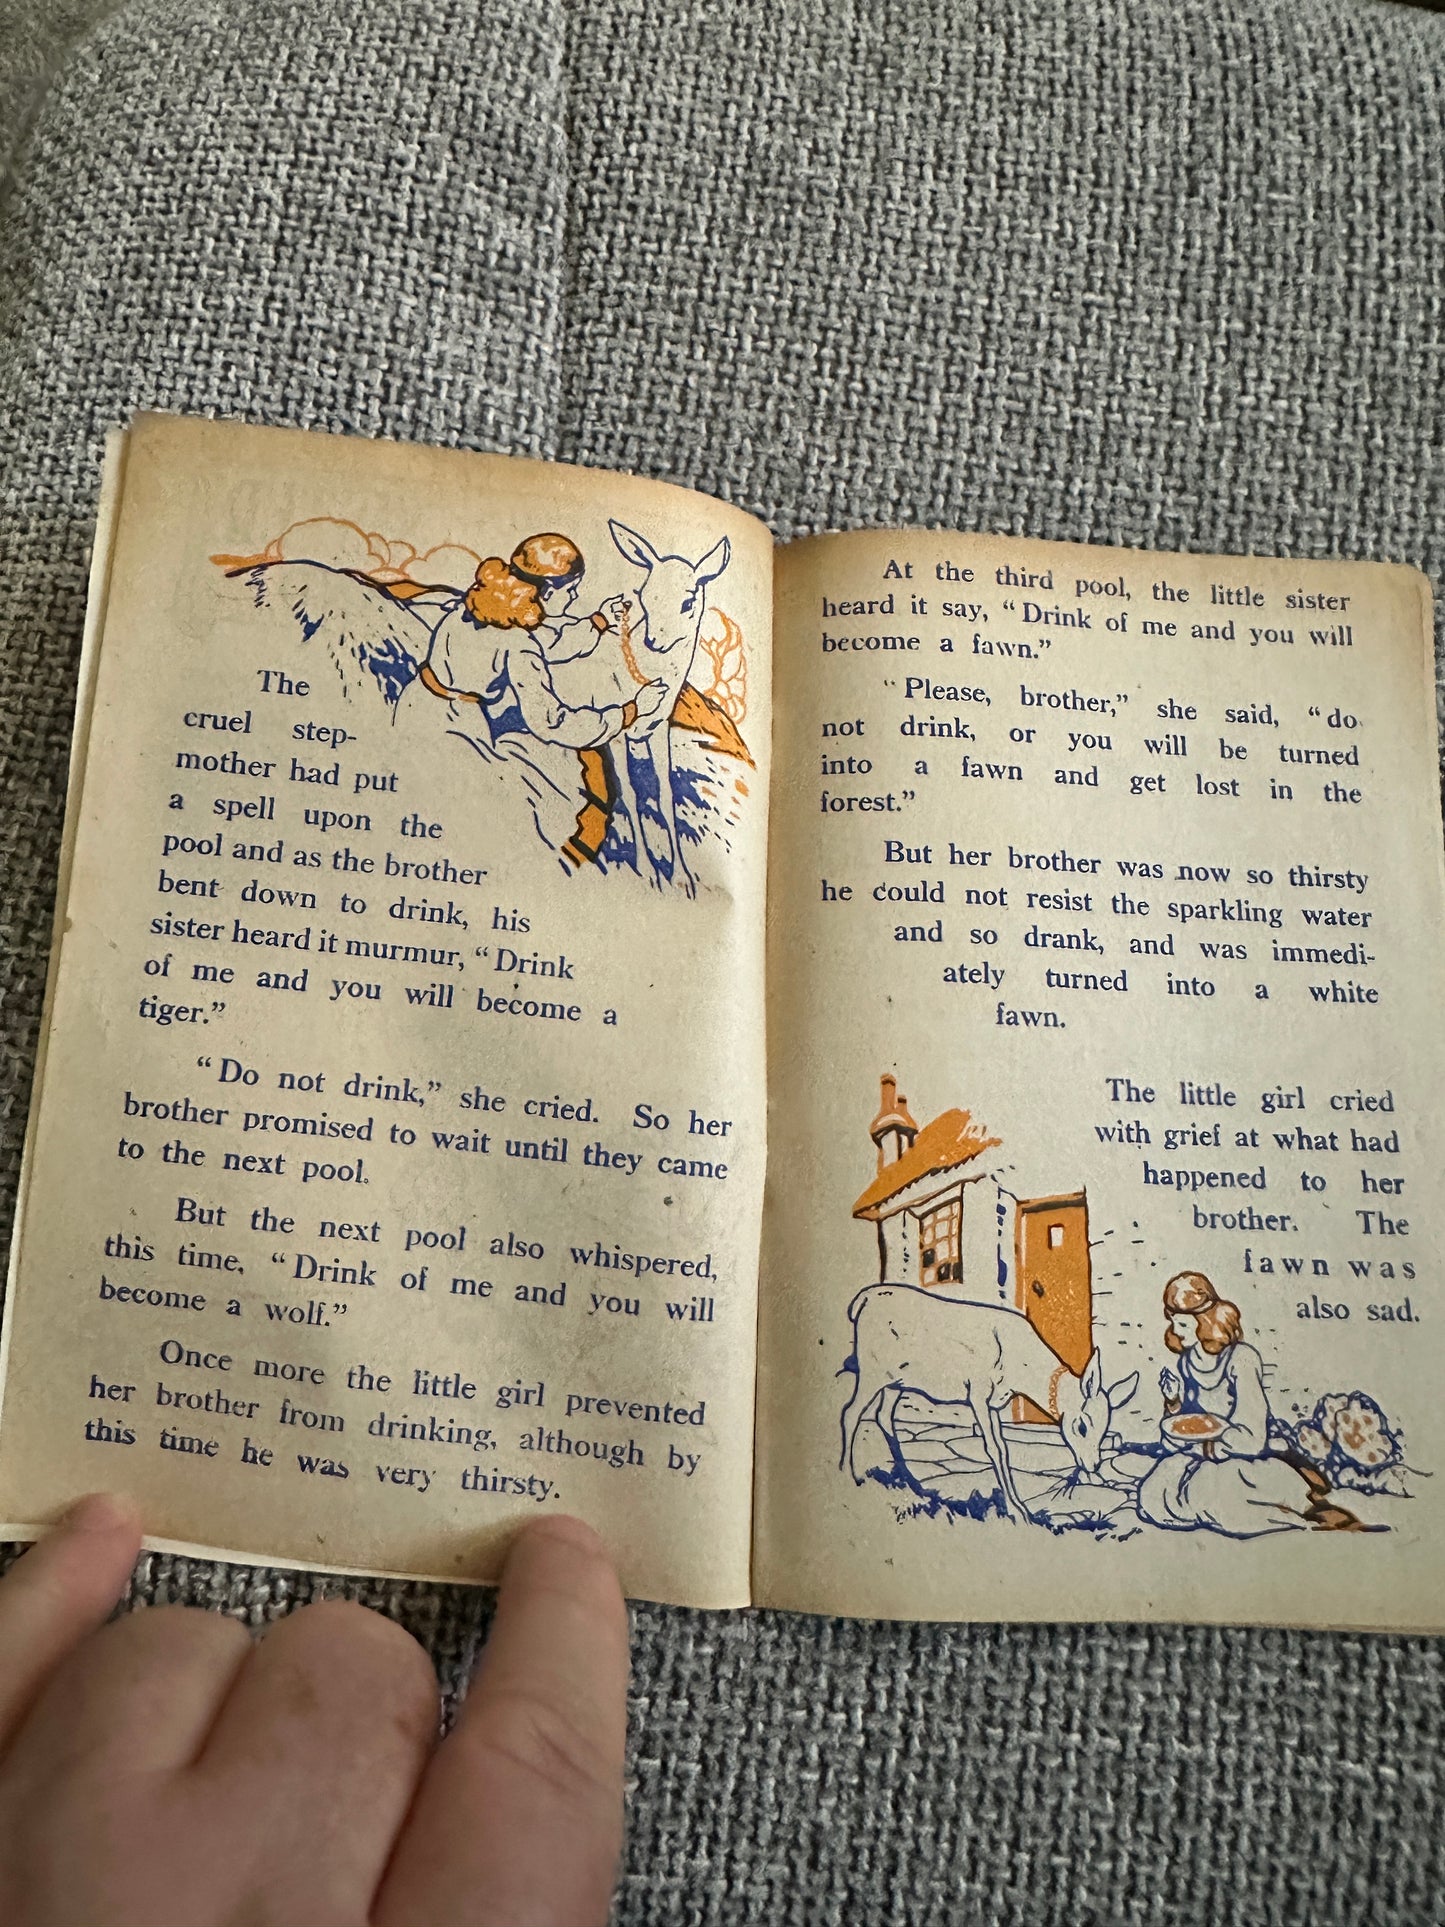 The
cruel step-
mother had put
a spell upon the
pool and as the brother
bent down to drink, his
sister heard it murmur, “Drink
of me and you will become a
tiger.”
“Do not drink,” she cried. So her
brother promised to wait until they came
to the next pool.
But the next pool also whispered,
this time, “Drink of me and you will
become a wolf.”
Once more the little girl prevented
her brother from drinking, although by
this time he was very thirsty.
At the third pool, the little sister
heard it say, “Drink of me and you will
become a fawn.”
“Please, brother,” she said, “do
not drink, or you will be turned
into a fawn and get lost in the
forest.”
But her brother was now so thirsty
he could not resist the sparkling water
and so drank, and was immedi-
ately turned into a white
fawn.
The little girl cried
with grief at what had
happened to her
brother. The
fawn was
also sad.